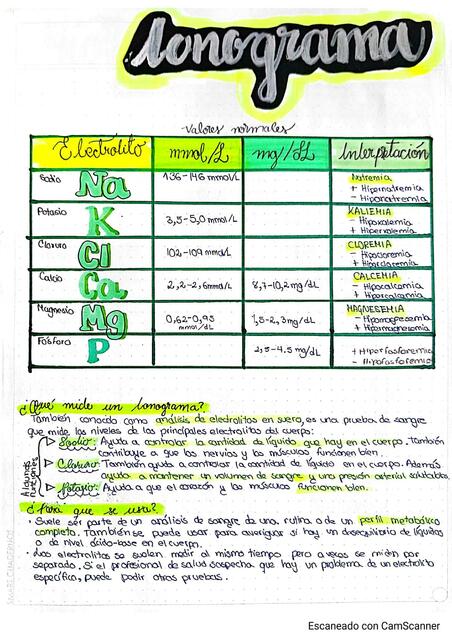 Ionograma
Valores normales
Electrólito mmol/L mg/dL Interpretación
Sodio Na 136-146 mmol/L Natremia
+ Hipernatremia
- Hiponatremia
Potasio K 3,5-5,0 mmol/L KALIEMIA
- Hipokalemia
+ Hiperkalemia
Cloruro Cl 102-109 mmol/L CLOREMIA
- Hipocloremia
+ Hipercloremia
Calcio Ca 2,2-2,6 mmol/L 8,7-10,2 mg/dL CALCEMIA
- Hipocalcemia
+ Hipercalcemia
Magnesio Mg 0,62-0,95 mmol/dL 1,5-2,3 mg/dL MAGNESEMIA
- Hipomagnesemia
+ Hipermagnesemia
Fósforo P 2,5-4,5 mg/dL + Hiperfosforemia
- Hipofosforemia
¿Qué mide un Ionograma?
También conocido como análisis de electrolitos en suero, es una prueba de sangre
que mide los niveles de los principales electrolitos del cuerpo:
Algunas funciones
Sodio: Ayuda a controlar la cantidad de líquido que hay en el cuerpo. También
contribuye a que los nervios y los músculos funcionen bien.
Cloruro: También ayuda a controlar la cantidad de líquido en el cuerpo. Además
ayuda a mantener un volumen de sangre y una presión arterial saludables.
Potasio: Ayuda a que el corazón y los músculos funcionen bien.
¿Para que se usa?
• Suele ser parte de un análisis de sangre de una rutina o de un perfil metabólico
completo. También se puede usar para averiguar si hay un desequilibrio de líquidos
o de nivel ácido-base en el cuerpo.
• Los electrolitos se suelen medir al mismo tiempo pero a veces se miden por
separado. Si el profesional de salud sospecha que hay un problema de un electrolito
específico, puede pedir otras pruebas.
Escaneado con CamScanner